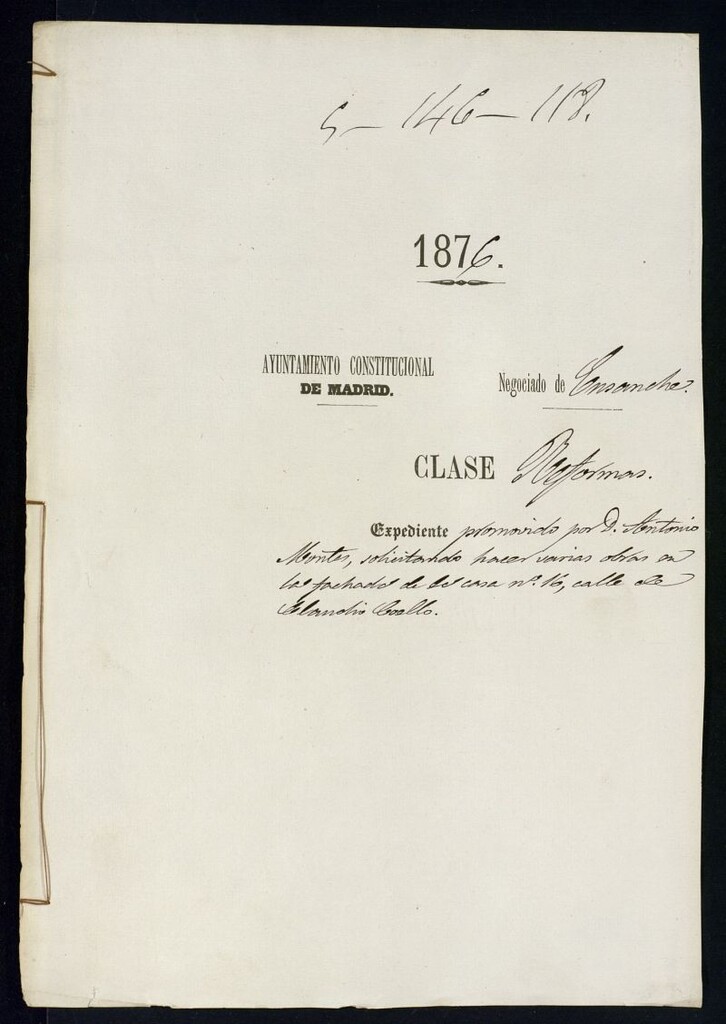 5 - 146 - 118.
1876.
AYUNTAMIENTO CONSTITUCIONAL
DE MADRID.
Negociado de Ensanche.
CLASE Reformas.
Expediente promovido por D. Antonio
Montes, solicitando hacer varias obras en
la fachada de la casa nº. 16, calle de
Claudio Coello.